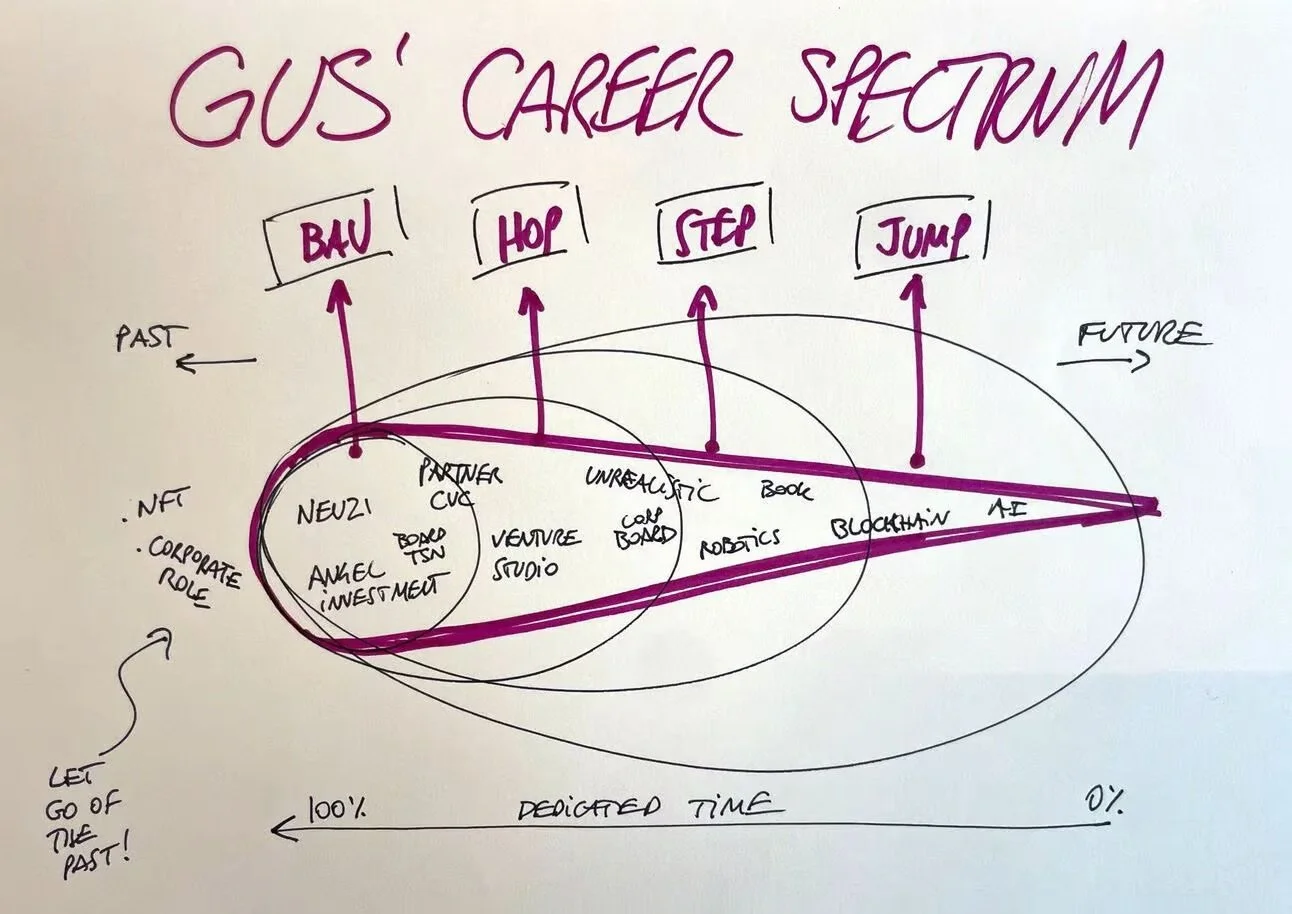 GUS' CAREER SPECTRUM
BAU
HOP
STEP
JUMP
PAST
FUTURE
. NFT
. CORPORATE
ROLE
NEUZI
ANGEL
INVESTMENT
PARTNER
CVC
BOARD
TSN
VENTURE
STUDIO
UNREALISTIC
CORP
BOARD
BOOK
ROBOTICS
BLOCKCHAIN
AI
LET
GO OF
THE
PAST!
100%
DEDICATED TIME
0%